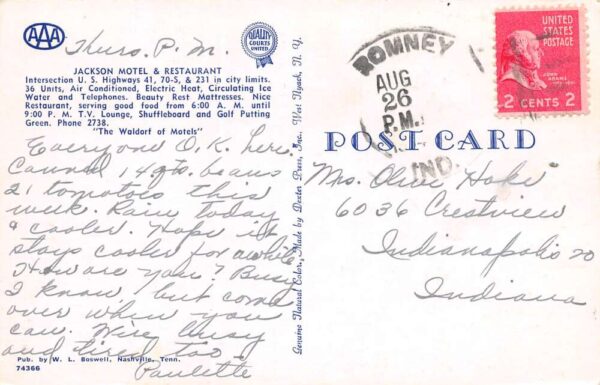 AAA
Thurs. P.M.
QUALITY
COURTS
UNITED
JACKSON MOTEL & RESTAURANT
Intersection U. S. Highways 41, 70-S, & 231 in city limits.
36 Units, Air Conditioned, Electric Heat, Circulating Ice
Water and Telephones. Beauty Rest Mattresses. Nice
Restaurant, serving good food from 6:00 A. M. until
9:00 P. M. T.V. Lounge, Shuffleboard and Golf Putting
Green. Phone 2738.
"The Waldorf of Motels"
Everyone O.K. here.
Canned 14 qts. beans
21 tomatoes this
week. Rain today
& cooler. Hope it
stays cooler for awhile
How are you? Busy
I know, but come
over when you
can. We're busy
and tired too
Paulette
Pub. by W. L. Boswell, Nashville, Tenn.
74366
Genuine Natural Color, Made by Dexter Press, Inc. West Nyack, N. Y.
ROMNEY
AUG
26
P.M.
IND.
UNITED
STATES
POSTAGE
JOHN
ADAMS
2 CENTS 2
POST CARD
Mrs. Olive Hoke
6036 Crestview
Indianapolis 20
Indiana